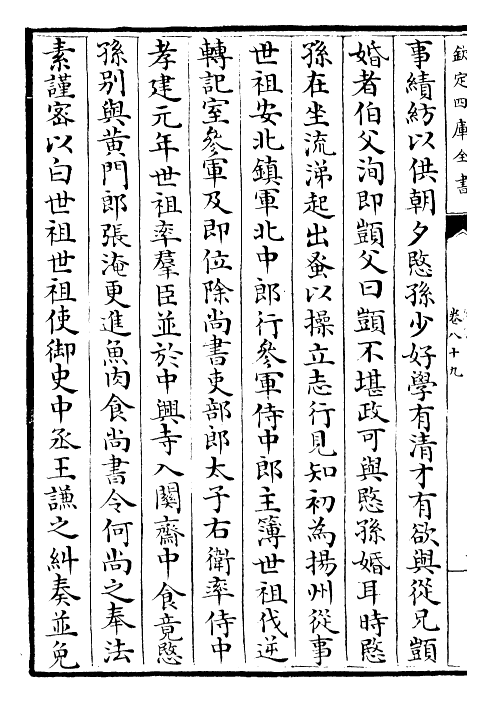 欽定四庫全書
卷八十九
事績紡以供朝夕愍孫少好學有清才有欲與從兄顗
婚者伯父洵即顗父曰顗不堪政可與愍孫婚耳時愍
孫在坐流涕起出蚤以操立志行見知初為揚州從事
世祖安北鎮軍北中郎行參軍侍中郎主簿世祖伐逆
轉記室參軍及即位除尚書吏部郎太子右衛率侍中
孝建元年世祖率羣臣並於中興寺八關齋中食竟愍
孫别與黃門郎張淹更進魚肉食尚書令何尚之奉法
素謹宻以白世祖世祖使御史中丞王謙之糾奏並免